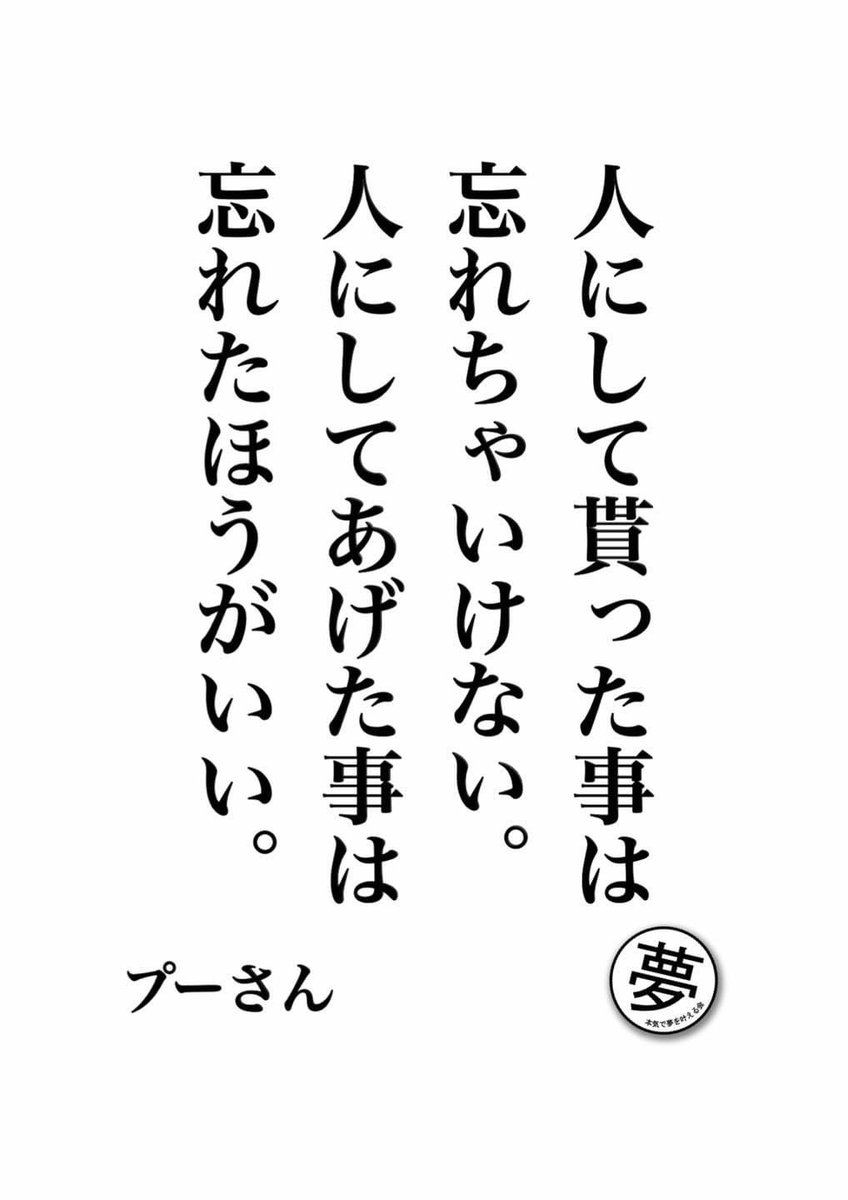 人にして貰った事は
忘れちゃいけない。
人にしてあげた事は
忘れたほうがいい。
プーさん
夢
本気で夢を叶える会